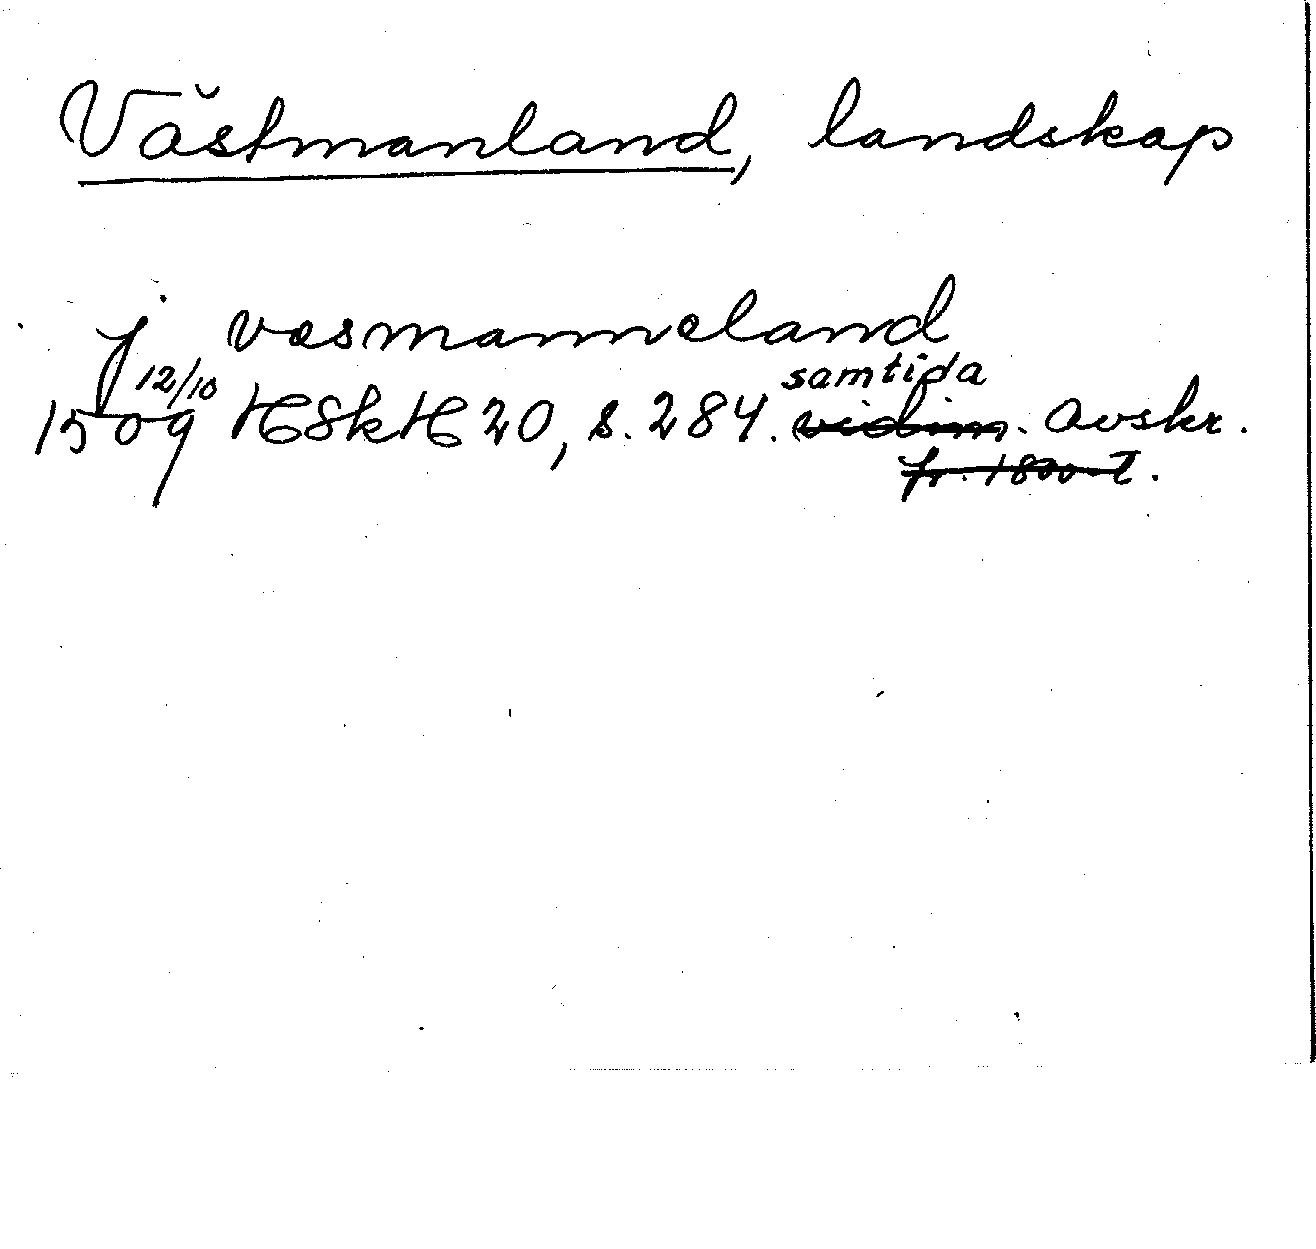 Västmanland, landskap
j vesmanneland
12/10 samtida
1509 HSkH 20, s. 284. vidim. avskr.
fr. 1800-t.